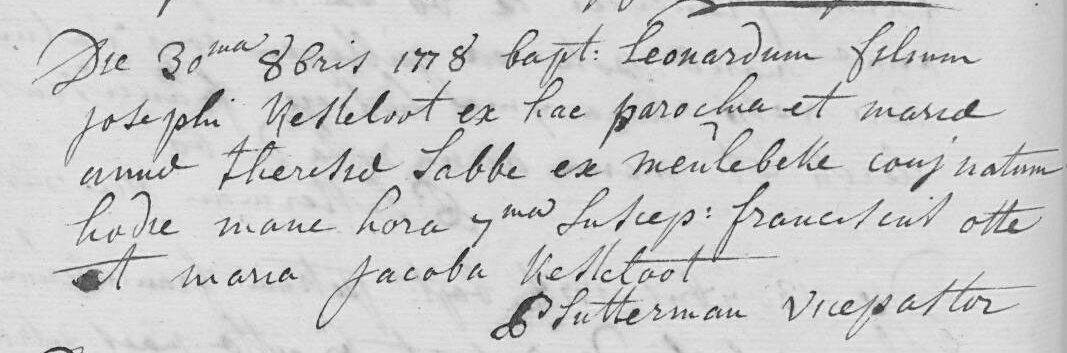 Die 30ma 8bris 1778 bapt: Leonardum filium
josephi Kesteloot ex hac parochia et mariæ
annæ theresiæ Sabbe ex meulebeke conj natum
hodie mane hora 7ma Suscep: franciscus otte
et maria jacoba Kesteloot
Sutterman vicepastor